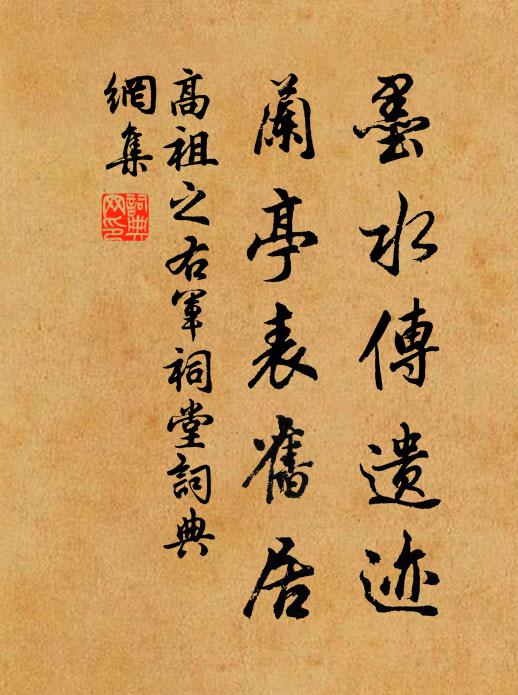 墨水傳遺迹
蘭亭表舊居
高祖之右軍祠堂詞典
網集
詞典
网印